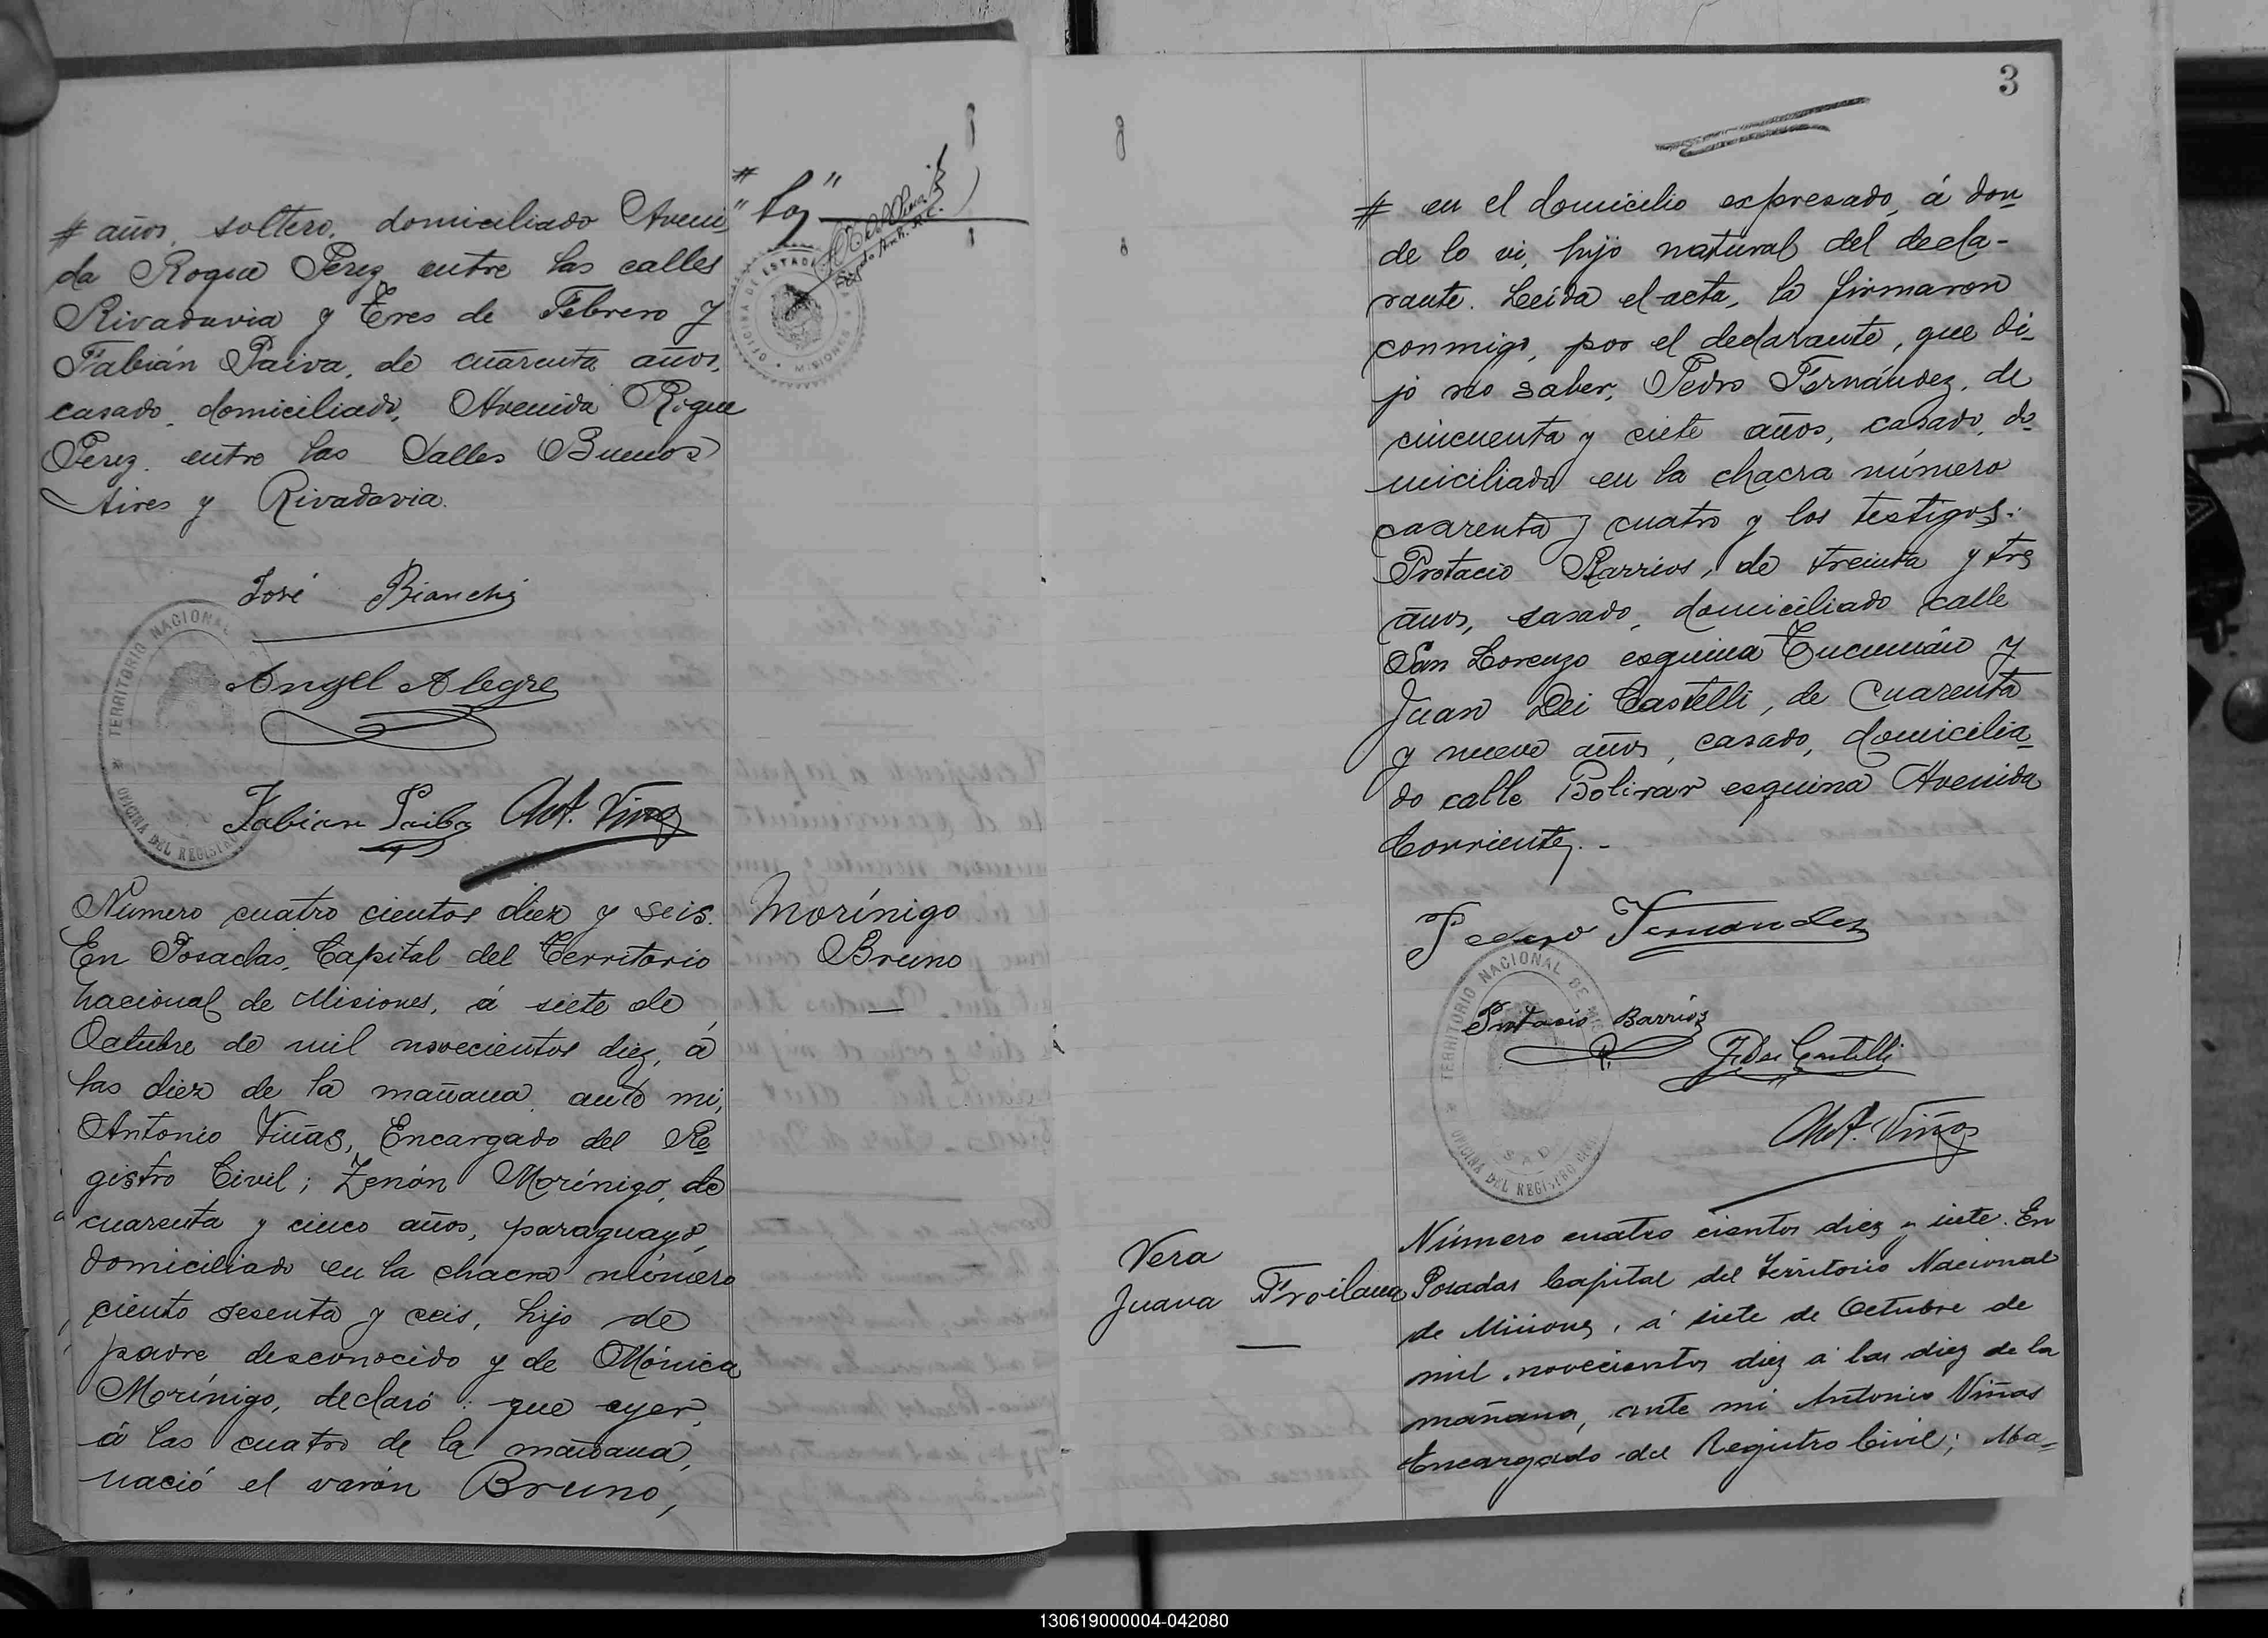 # años, soltero, domiciliado Aveni
da Roque Perez entre las calles
Rivadavia y Tres de Febrero y
Fabián Paiva, de cuarenta años,
casado, domiciliado, Avenida Roque
Perez, entre las Calles Buenos
Aires y Rivadavia.
José Bianchi
Angel Alegre
Fabian Paiba Ant. Viñas
TERRITORIO NACIONAL
OFICINA DEL REGISTRO
Número cuatro cientos diez y seis.
En Posadas, Capital del Territorio
Nacional de Misiones, á siete de
Octubre de mil novecientos diez, á
las diez de la mañana, ante mi,
Antonio Viñas, Encargado del Re
gistro Civil; Zenón Morínigo, de
cuarenta y cinco años, paraguayo,
domiciliado en la chacra número
ciento sesenta y seis, hijo de
padre desconocido y de Mónica
Morínigo, declaró: que ayer,
á las cuatro de la mañana,
nació el varón Bruno,
Morínigo
Bruno
3
# en el domicilio expresado, á don
de lo vi, hijo natural del decla-
rante. Leída el acta, la firmaron
conmigo, por el declarante, que di-
jo no saber, Pedro Fernández, de
cincuenta y siete años, casado, do-
miciliado en la chacra número
cuarenta y cuatro y los testigos:
Protacio Barrios, de treinta y tres
años, casado, domiciliado calle
San Lorenzo esquina Tucumán y
Juan Dei Castelli, de cuarenta
y nueve años, casado, domicilia-
do calle Bolivar esquina Avenida
Corrientes.-
Pedro Fernandez
Protasio Barrios
J. Dei Castelli
Ant. Viñas
TERRITORIO NACIONAL DE MIS
OFICINA DEL REGISTRO CIVIL
Vera
Juana Froilana
Número cuatro cientos diez y siete. En
Posadas Capital del Territorio Nacional
de Misiones, á siete de Octubre de
mil novecientos diez á las diez de la
mañana, ante mi Antonio Viñas
Encargado del Registro Civil; Ma-
130619000004-042080